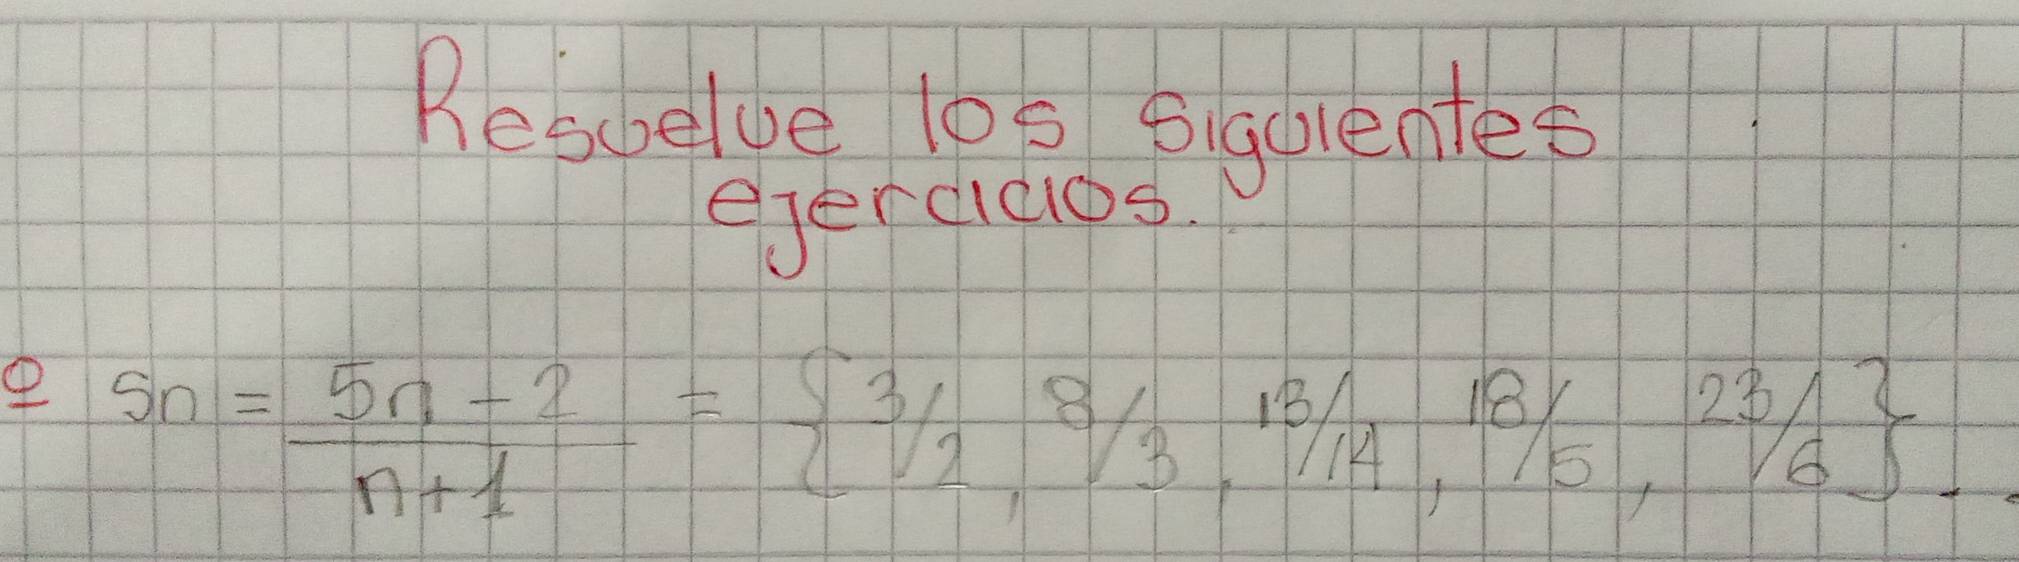 Resuelve los siguientes
ejercicios.
Sn = \frac{5n - 2}{n+1} = {3/2, 8/3, 13/14, 18/5, 23/6}..